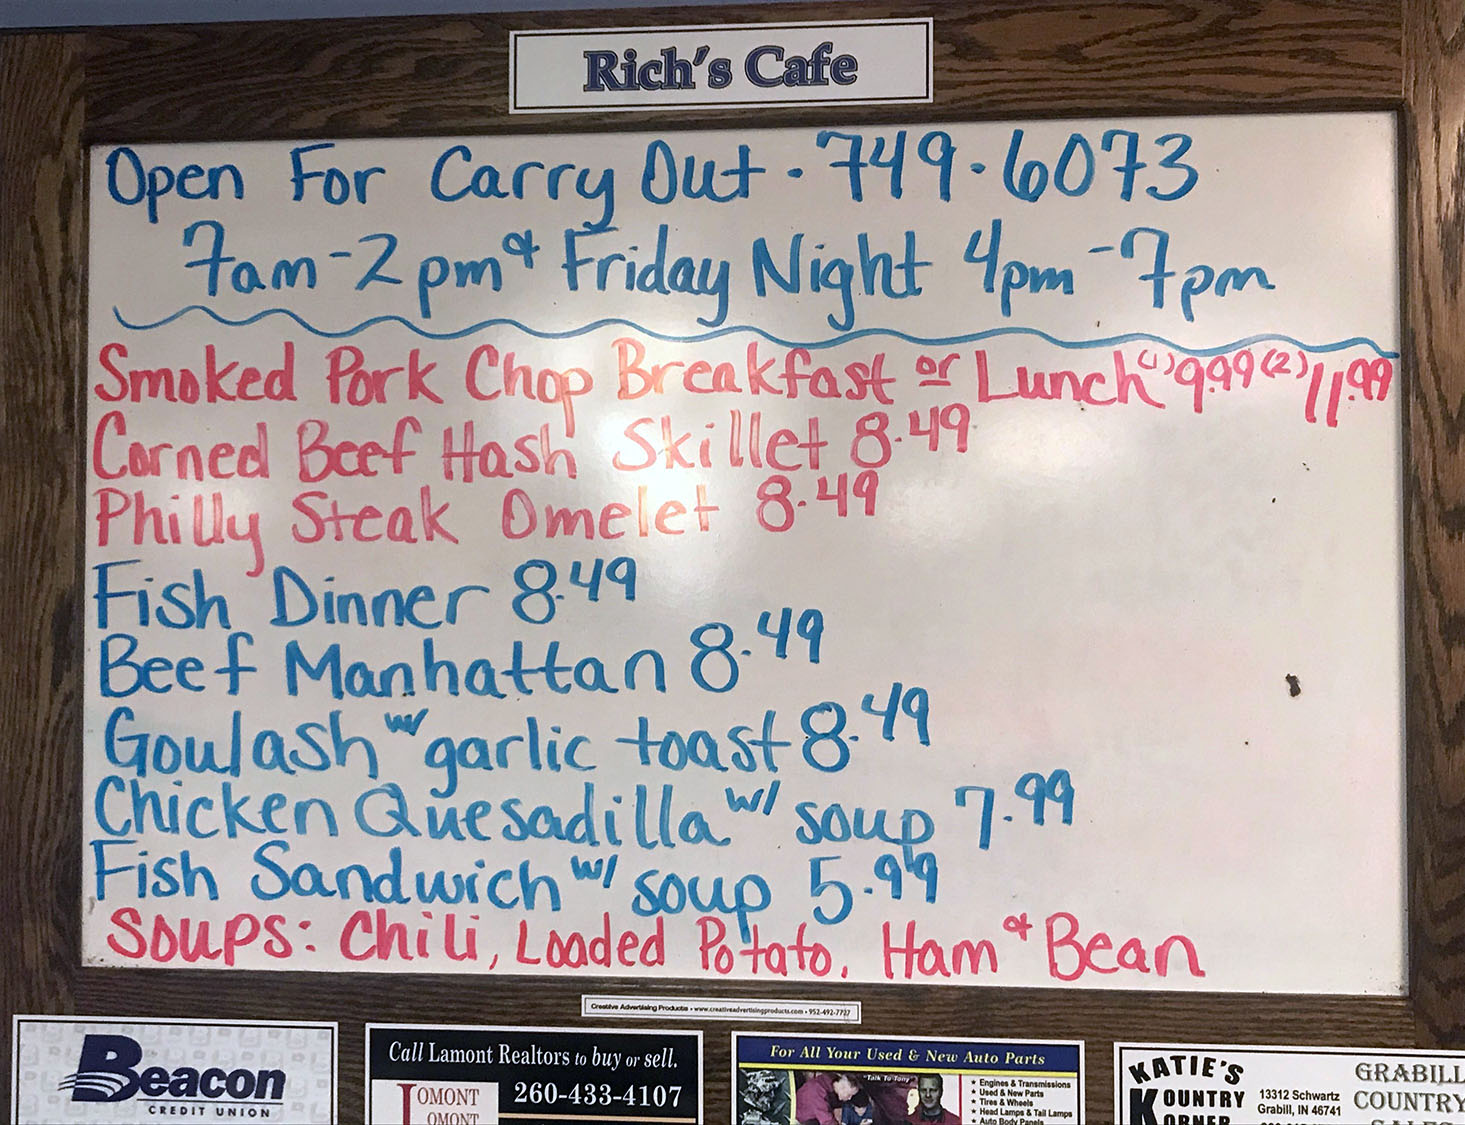 Rich's Cafe
Open For Carry Out - 749-6073
7am-2pm & Friday Night 4pm-7pm
Smoked Pork Chop Breakfast or Lunch (1) 9.99 (2) 11.99
Corned Beef Hash Skillet 8.49
Philly Steak Omelet 8.49
Fish Dinner 8.49
Beef Manhattan 8.49
Goulash w/ garlic toast 8.49
Chicken Quesadilla w/ soup 7.99
Fish Sandwich w/ soup 5.99
Soups: Chili, Loaded Potato, Ham & Bean
Creative Advertising Products • www.creativeadvertisingproducts.com • 952-492-7727
Beacon
CREDIT UNION
Call Lamont Realtors to buy or sell.
LOMONT
260-433-4107
For All Your Used & New Auto Parts
"Talk To Tony"
★ Engines & Transmissions
★ Used & New Parts
★ Tires & Wheels
★ Head Lamps & Tail Lamps
★ Auto Body Panels
KATIE'S
KOUNTRY
KORNER
13312 Schwartz
Grabill, IN 46741
GRABILL
COUNTRY
SALES